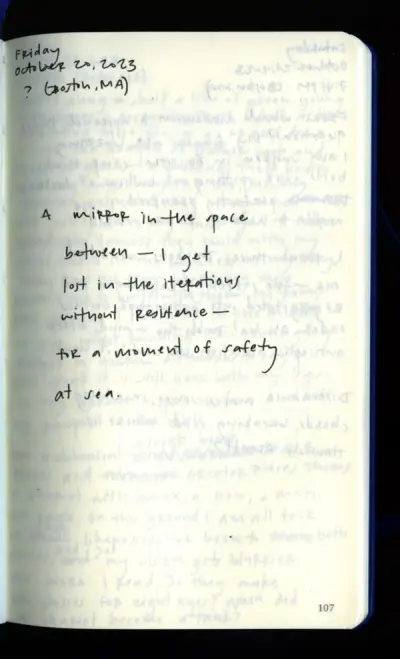 Friday
October 20, 2023
? (Boston, MA)
A mirror in the space
between — I get
lost in the iterations
without resistence —
for a moment of safety
at sea.
107